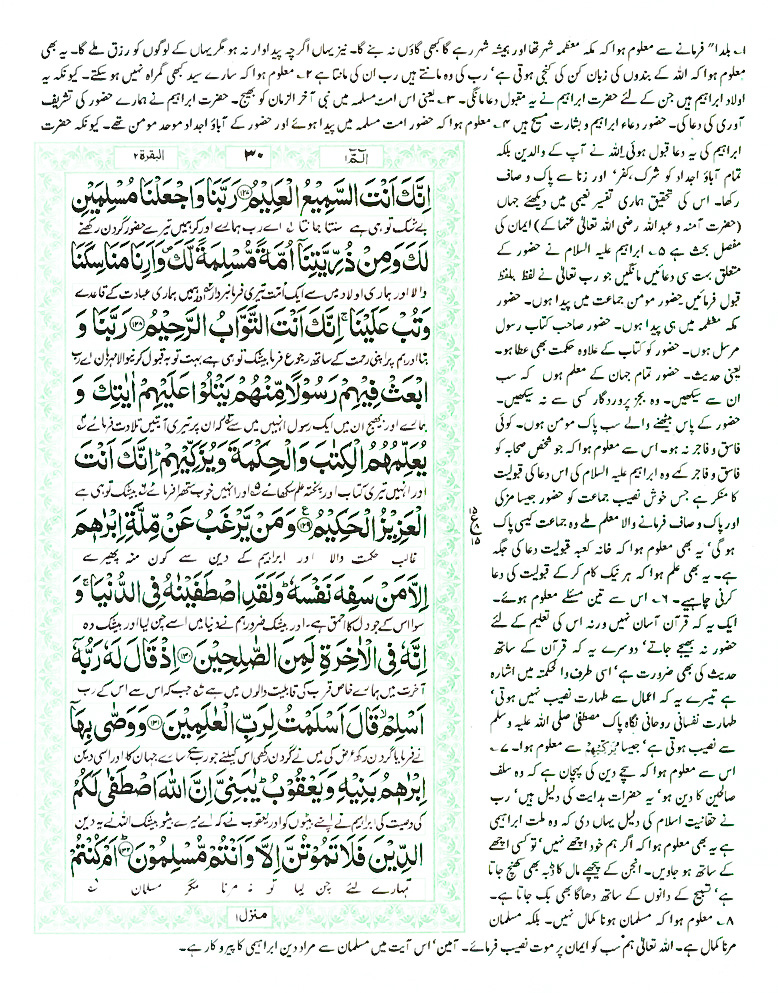 ۱۔ بلدا" فرمانے سے معلوم ہوا کہ مکہ معظمہ شہر تھا اور ہمیشہ شہر رہے گا کبھی گاؤں نہ بنے گا۔ نیز یہاں اگرچہ پیداوار نہ ہو مگر یہاں کے لوگوں کو رزق ملے گا۔ یہ بھی
معلوم ہوا کہ اللہ کے بندوں کی زبان کن کی کنجی ہوتی ہے' رب کی وہ مانتے ہیں رب ان کی مانتا ہے ۲۔ معلوم ہوا کہ سارے سید کبھی گمراہ نہیں ہو سکتے۔ کیونکہ یہ
اولاد ابراہیم ہیں جن کے لئے حضرت ابراہیم نے یہ مقبول دعا مانگی۔ ۳۔ یعنی اس امت مسلمہ میں نبی آخر الزمان کو بھیج۔ حضرت ابراہیم نے ہمارے حضور کی تشریف
آوری کی دعا کی۔ حضور دعاء ابراہیم و بشارت مسیح ہیں ۴۔ معلوم ہوا کہ حضور امت مسلمہ میں پیدا ہوئے اور حضور کے آباؤ اجداد موحد مومن تھے۔ کیونکہ حضرت
ابراہیم کی یہ دعا قبول ہوئی اللہ نے آپ کے والدین بلکہ
تمام آباؤ اجداد کو شرک' کفر' اور زنا سے پاک و صاف
رکھا۔ اس کی تحقیق ہماری تفسیر نعیمی میں دیکھئے جہاں
(حضرت آمنہ و عبداللہ رضی اللہ تعالیٰ عنہما کے) ایمان کی
مفصل بحث ہے ۵۔ ابراہیم علیہ السلام نے حضور کے
متعلق بہت سی دعائیں مانگیں جو رب تعالیٰ نے لفظ بلفظ
قبول فرمائیں حضور مومن جماعت میں پیدا ہوں۔ حضور
مکہ معظمہ میں ہی پیدا ہوں۔ حضور صاحب کتاب رسول
مرسل ہوں۔ حضور کو کتاب کے علاوہ حکمت بھی عطا ہو۔
یعنی حدیث۔ حضور تمام جہان کے معلم ہوں کہ سب
ان سے سیکھیں۔ وہ بجز پروردگار کسی سے نہ سیکھیں۔
حضور کے پاس بیٹھنے والے سب پاک مومن ہوں۔ کوئی
فاسق و فاجر نہ ہو۔ اس سے معلوم ہوا کہ جو شخص صحابہ کو
فاسق و فاجر کہے وہ ابراہیم علیہ السلام کی اس دعا کی قبولیت
کا منکر ہے جس خوش نصیب جماعت کو حضور جیسا مزکی
اور پاک و صاف فرمانے والا معلم ملے وہ جماعت کیسی پاک
ہو گی' یہ بھی معلوم ہوا کہ خانہ کعبہ قبولیت دعا کی جگہ
ہے۔ یہ بھی علم ہوا کہ ہر نیک کام کر کے قبولیت کی دعا
کرنی چاہیے۔ ۶۔ اس سے تین مسئلے معلوم ہوئے۔
ایک یہ کہ قرآن آسان نہیں ورنہ اس کی تعلیم کے لئے
حضور نہ بھیجے جاتے' دوسرے یہ کہ قرآن کے ساتھ
حدیث کی بھی ضرورت ہے' اسی طرف والحکمتہ میں اشارہ
ہے تیسرے یہ کہ اعمال سے طہارت نصیب نہیں ہوتی'
طہارت نفسانی روحانی نگاہ پاک مصطفیٰ صلی اللہ علیہ وسلم
سے نصیب ہوتی ہے' جیسا یُزَكِّيْهِمْ سے معلوم ہوا۔ ۷۔
اس سے معلوم ہوا کہ سچے دین کی پہچان ہے کہ وہ سلف
صالحین کا دین ہو' یہ حضرات ہدایت کی دلیل ہیں' رب
نے حقانیت اسلام کی دلیل یہاں دی کہ وہ ملت ابراہیمی
ہے یہ بھی معلوم ہوا کہ اگر ہم خود اچھے نہیں' تو کسی اچھے
کے ساتھ ہو جاویں۔ انجن کے پیچھے مال کا ڈبہ بھی کھنچ جاتا
ہے' تسبیح کے دانوں کے ساتھ دھاگا بھی بک جاتا ہے۔
۸۔ معلوم ہوا کہ مسلمان ہونا کمال نہیں۔ بلکہ مسلمان
مرنا کمال ہے۔ اللہ تعالیٰ ہم سب کو ایمان پر موت نصیب فرمائے۔ آمین' اس آیت میں مسلمان سے مراد دین ابراہیمی کا پیرو کار ہے۔
الٓمّٓ ۱ ۳۰ البقرة ۲
اِنَّكَ اَنْتَ السَّمِيْعُ الْعَلِيْمُ ﴿۱۲۷﴾ رَبَّنَا وَاجْعَلْنَا مُسْلِمَيْنِ
بے شک تو ہی ہے سنتا جانتا اے رب ہمارے اور کر ہمیں تیرے حضور گردن رکھنے
لَكَ وَمِنْ ذُرِّيَّتِنَآ اُمَّةً مُّسْلِمَةً لَّكَ وَاَرِنَا مَنَاسِكَنَا
والا اور ہماری اولاد میں سے ایک امت تیری فرمانبردار اور ہمیں ہماری عبادت کے قاعدے
وَتُبْ عَلَيْنَا ۚ اِنَّكَ اَنْتَ التَّوَّابُ الرَّحِيْمُ ﴿۱۲۸﴾ رَبَّنَا وَ
بتا اور ہم پر اپنی رحمت کے ساتھ رجوع فرما بیشک تو ہی ہے بہت توبہ قبول کرنیوالا مہربان اے رب
ابْعَثْ فِيْهِمْ رَسُوْلًا مِّنْهُمْ يَتْلُوْا عَلَيْهِمْ اٰيٰتِكَ وَ
ہمارے اور بھیج ان میں ایک رسول انہیں میں سے کہ ان پر تیری آیتیں تلاوت فرمائے
يُعَلِّمُهُمُ الْكِتٰبَ وَالْحِكْمَةَ وَيُزَكِّيْهِمْ ؕ اِنَّكَ اَنْتَ
اور انہیں تیری کتاب اور پختہ علم سکھائے اور انہیں خوب ستھرا فرمائے بیشک تو ہی ہے
الْعَزِيْزُ الْحَكِيْمُ ﴿۱۲۹﴾ وَمَنْ يَّرْغَبُ عَنْ مِّلَّةِ اِبْرٰهٖمَ
غالب حکمت والا اور ابراہیم کے دین سے کون منہ پھیرے
اِلَّا مَنْ سَفِهَ نَفْسَهٗ ؕ وَلَقَدِ اصْطَفَيْنٰهُ فِي الدُّنْيَا ۚ وَ
سوا اس کے جو دل کا احمق ہے، اور بیشک ضرور ہم نے دنیا میں اسے چن لیا اور بیشک وہ
اِنَّهٗ فِي الْاٰخِرَةِ لَمِنَ الصّٰلِحِيْنَ ﴿۱۳۰﴾ اِذْ قَالَ لَهٗ رَبُّهٗٓ
آخرت میں ہمارے خاص قرب کی قابلیت والوں میں ہے جب کہ اس سے اس کے رب
اَسْلِمْ ۙ قَالَ اَسْلَمْتُ لِرَبِّ الْعٰلَمِيْنَ ﴿۱۳۱﴾ وَوَصّٰى بِهَآ
نے فرمایا گردن رکھ عرض کی میں نے گردن رکھی اس کیلئے جو رب ہے سارے جہان کا اور اسی دین
اِبْرٰهٖمُ بَنِيْهِ وَيَعْقُوْبُ ؕ يٰبَنِيَّ اِنَّ اللّٰهَ اصْطَفٰى لَكُمُ
کی وصیت کی ابراہیم نے اپنے بیٹوں کو اور یعقوب نے کہ اے میرے بیٹو بیشک اللہ نے یہ دین
الدِّيْنَ فَلَا تَمُوْتُنَّ اِلَّا وَاَنْتُمْ مُّسْلِمُوْنَ ﴿۱۳۲﴾ اَمْ كُنْتُمْ
تمہارے لئے چن لیا تو نہ مرنا مگر مسلمان
منزل ۱